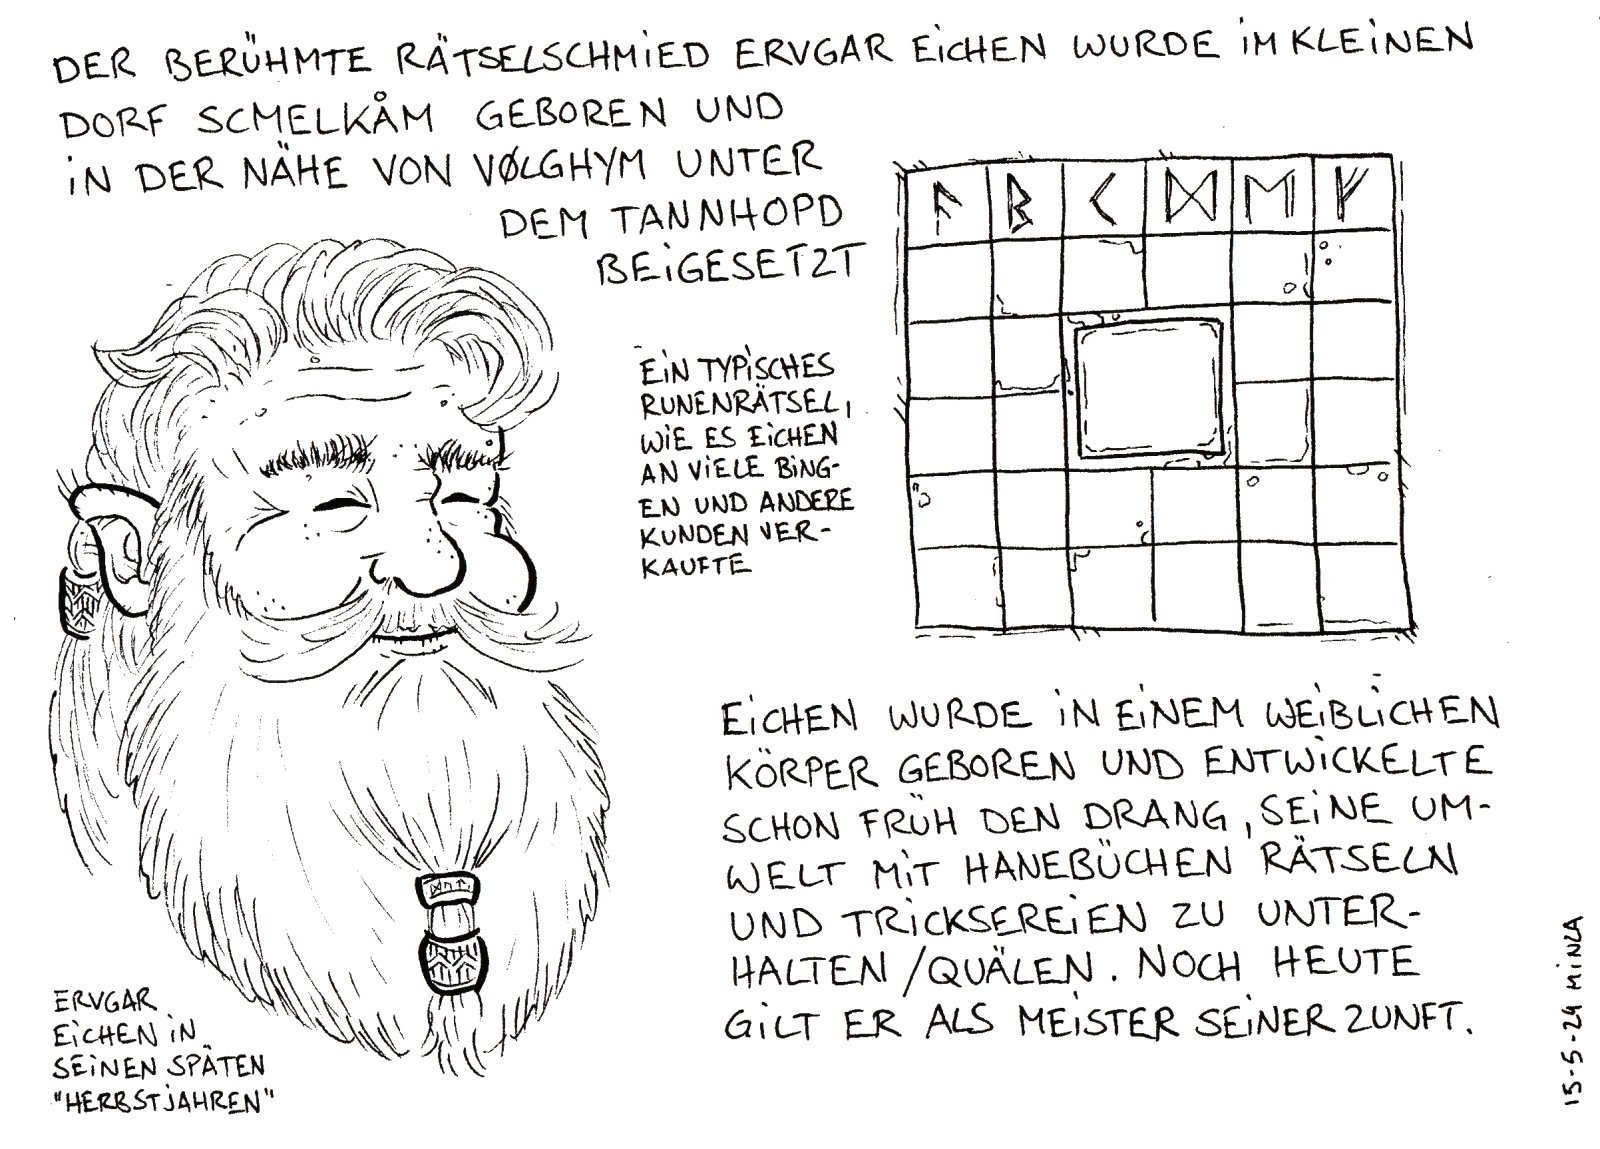 DER BERÜHMTE RÄTSELSCHMIED ERVGAR EICHEN WURDE IM KLEINEN
DORF SCMELKÅM GEBOREN UND
IN DER NÄHE VON VØLGHYM UNTER
DEM TANNHOPD
BEIGESETZT
ᚨ ᛒ ᚲ ᛞ ᛖ ᚠ
EIN TYPISCHES
RUNENRÄTSEL,
WIE ES EICHEN
AN VIELE BING-
EN UND ANDERE
KUNDEN VER-
KAUFTE
EICHEN WURDE IN EINEM WEIBLICHEN
KÖRPER GEBOREN UND ENTWICKELTE
SCHON FRÜH DEN DRANG, SEINE UM-
WELT MIT HANEBÜCHEN RÄTSELN
UND TRICKSEREIEN ZU UNTER-
HALTEN/QUÄLEN. NOCH HEUTE
GILT ER ALS MEISTER SEINER ZUNFT.
ERVGAR
EICHEN IN
SEINEN SPÄTEN
"HERBSTJAHREN"
15-5-24 MINZA